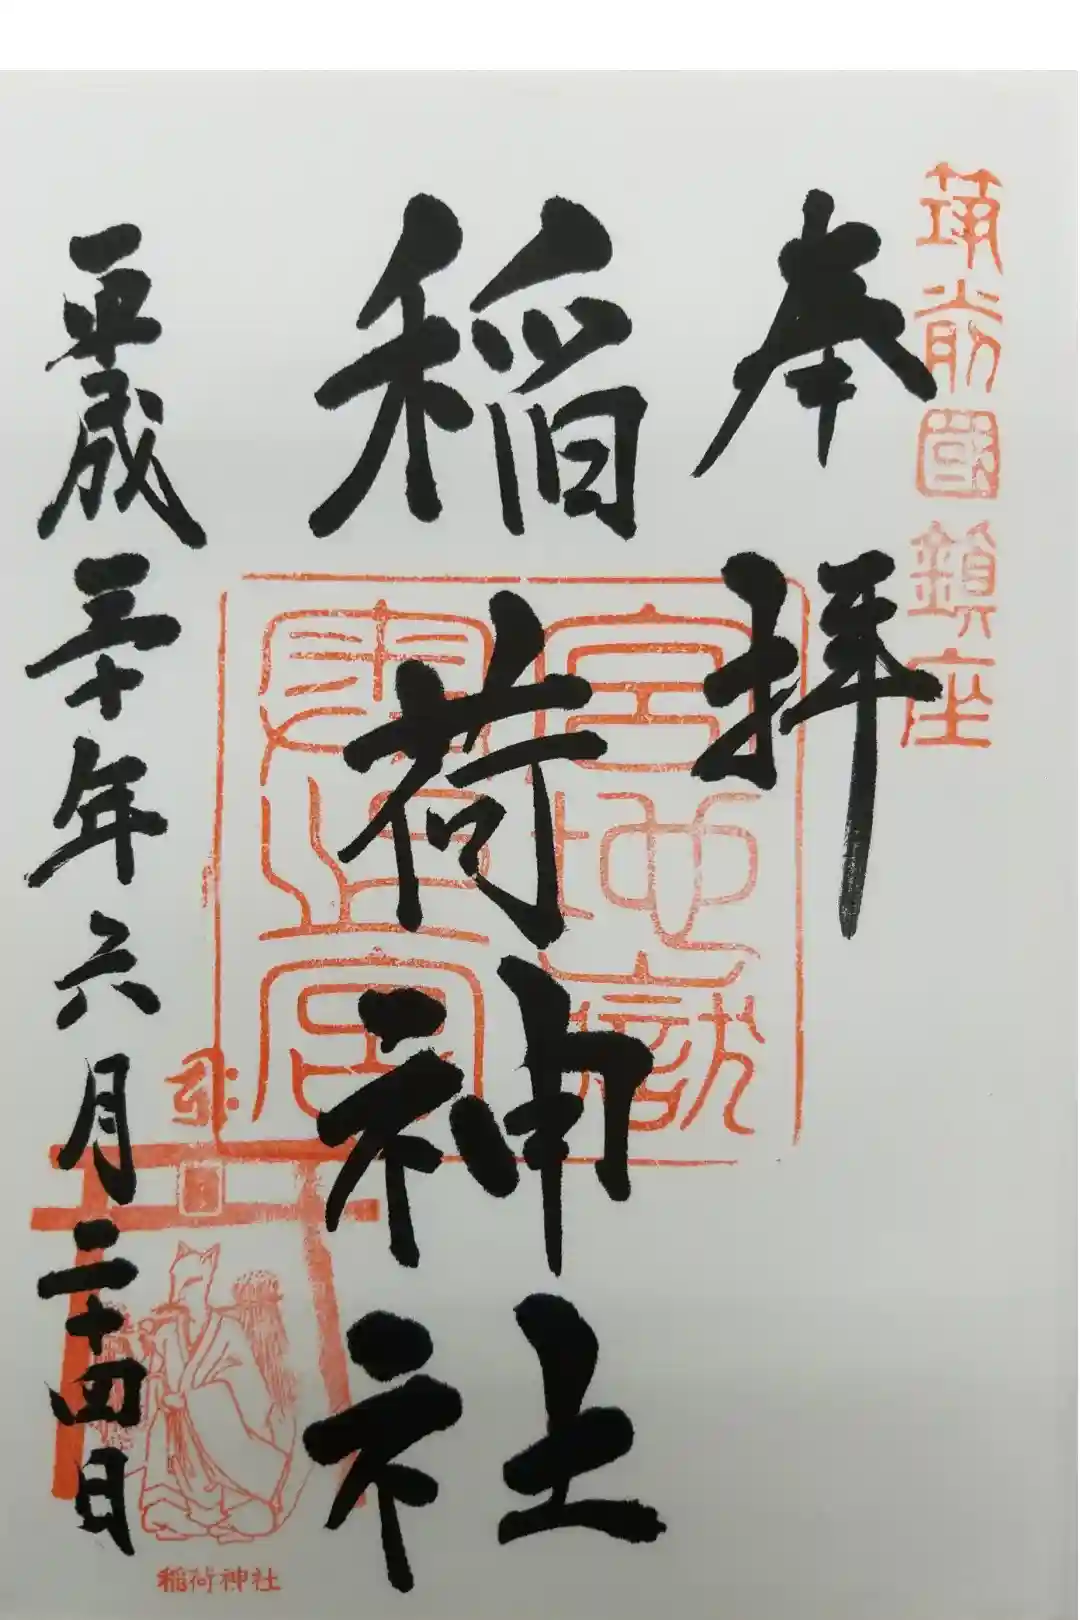 筑前國鎮座
奉拝
稲荷神社
平成三十年六月二十四日
稲荷神社